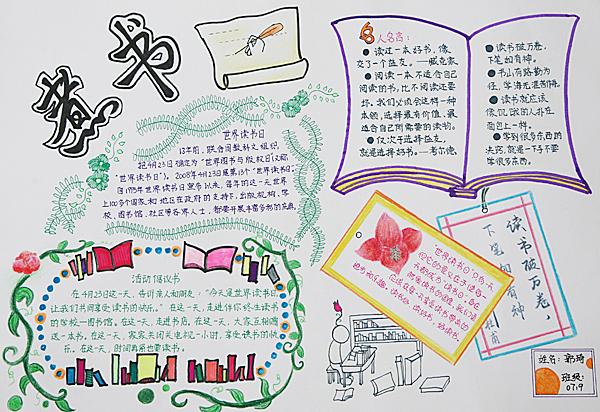 世界读书日
13年前,联合国教科文组织
把4月23日确定为“世界图书与版权日(又称
“世界读书日”)。2008年4月23日是第13个“世界读书日”。
自1995年世界读书日宣布以来,每年的这一天世界
上100多个国家和地区在政府的支持下,出版机构,学
校、图书馆、社区等各界人士,都要开展丰富多彩的庆典。
名人名言:
●读过一本好书,像
交了一个益友。——臧克家
●阅读一本不适合自己
阅读的书,比不阅读还要
坏。我们必须会这样一种
本领,选择最有价值、最
适合自己所需要的读物。
●仅次于选择益友,
就是选择好书。——考尔德
●读书破万卷,
下笔如有神。
●书山有路勤为
径,学海无涯苦作舟
●读书就应该
像饥饿的人扑在
面包上一样。
●学到很多东西的
诀窍,就是一下子不要
学很多东西。
活动倡议书
在4月23日这一天,告诉亲人和朋友:“今天是世界读书日,
让我们共同享受读书的快乐。”在这一天,走进伴你终生读书
的学校—图书馆。在这一天,走进书店,在这一天,大家互相赠
送一本书。在这一天,家家关闭电视机一小时,享受读书的快
乐。在这一天,时间再紧也要读书。
读书破万卷,
下笔如有神
杜甫
姓名:郭琦
班级:
0719